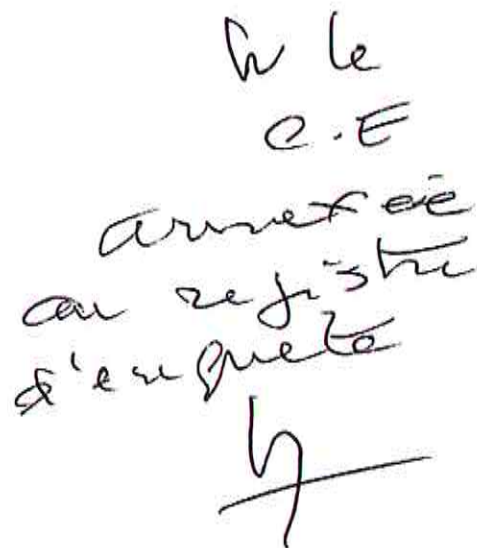 le
C.E
annexée
au registre
d'enquête